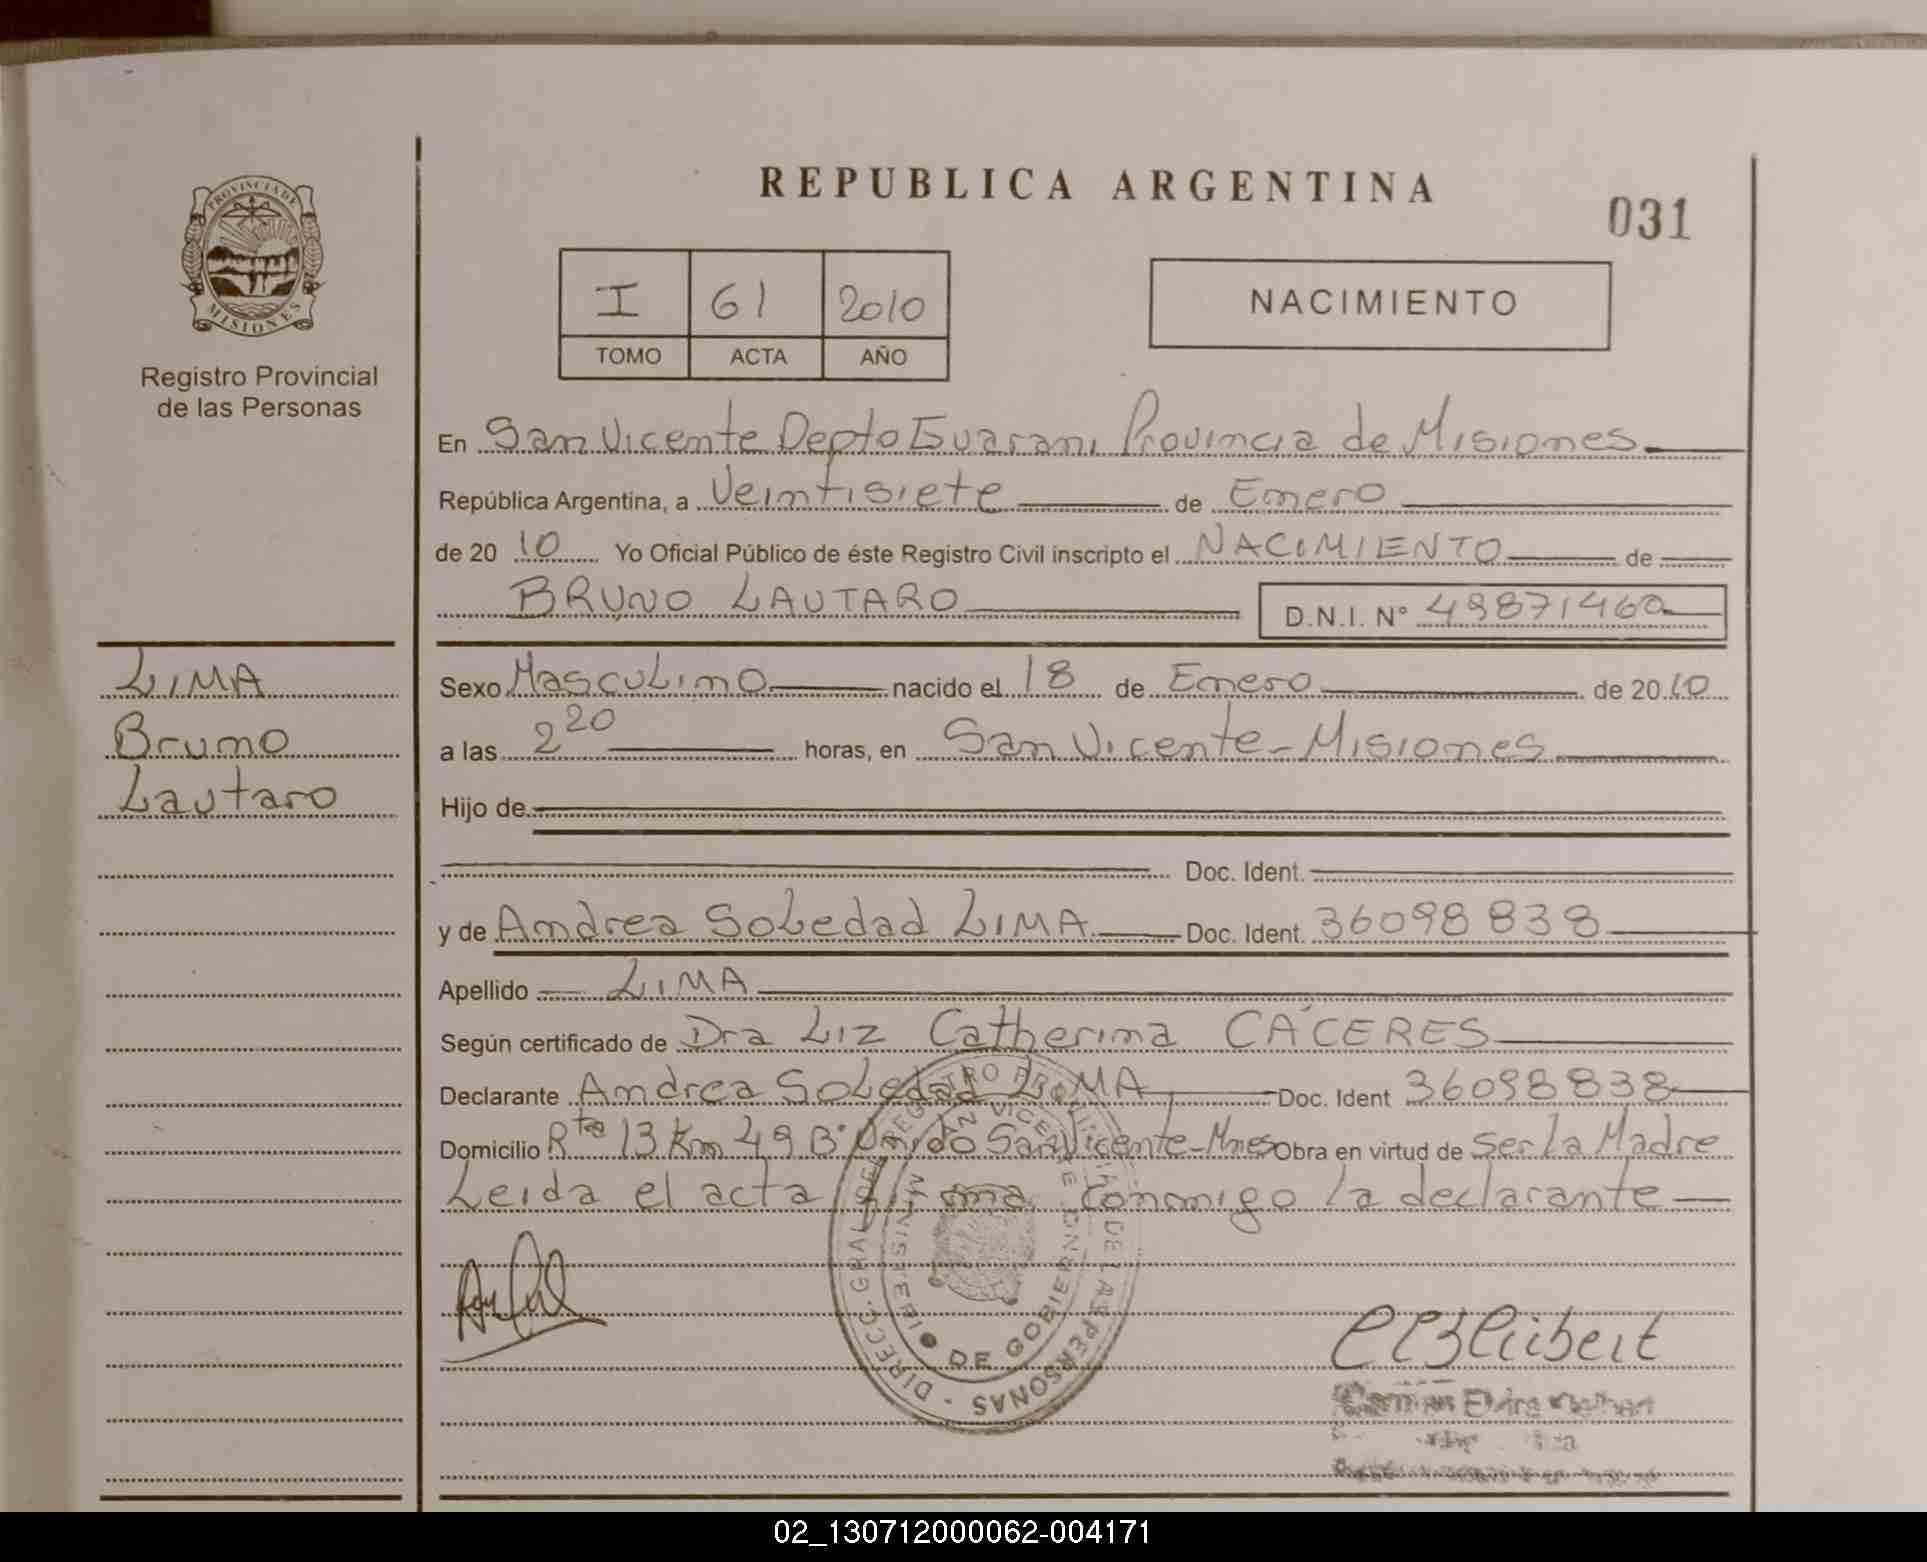 PROVINCIA DE
MISIONES
Registro Provincial
de las Personas
LIMA
Bruno
Lautaro
REPUBLICA ARGENTINA
031
I 61 2010
TOMO ACTA AÑO
NACIMIENTO
En San Vicente Depto Guarani Provincia de Misiones
República Argentina, a Veintisiete de Enero
de 2010 Yo Oficial Público de éste Registro Civil inscripto el NACIMIENTO de
BRUNO LAUTARO D.N.I. Nº 49871460
Sexo Masculino nacido el 18 de Enero de 2010
a las 2 20 horas, en San Vicente-Misiones
Hijo de
Doc. Ident.
y de Andrea Soledad LIMA Doc. Ident. 36098838
Apellido LIMA
Según certificado de Dra Liz Catherina CÁCERES
Declarante Andrea Soledad LIMA Doc. Ident 36098838
Domicilio Rta 13 Km 49 Bº Unido San Vicente-Mnes Obra en virtud de Ser La Madre
Leida el acta firma conmigo la declarante
DIRECC. GRAL. DEL REGISTRO PROVINCIAL DE LAS PERSONAS
SAN VICENTE
MINISTERIO DE GOBIERNO
Elvira
02_130712000062-004171